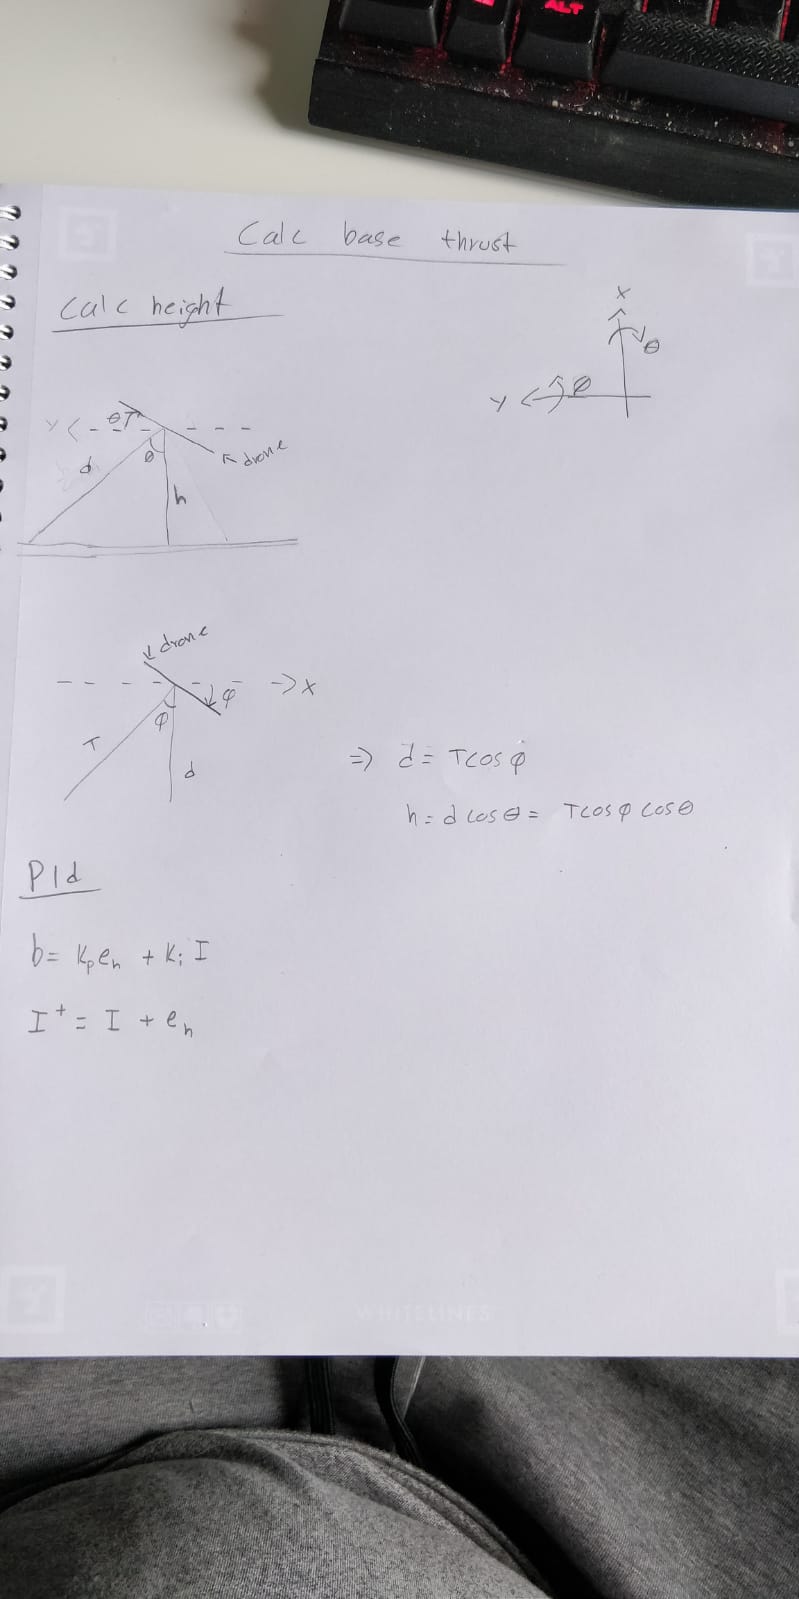 ALT
Calc base thrust
Calc height
X
θ
Y
φ
Y
θ
drone
d
θ
h
drone
X
φ
φ
T
d
=> d = Tcosφ
h = d cosθ = Tcosφ cosθ
PId
b = Kpeh + Ki I
I⁺ = I + eh
WHITELINES